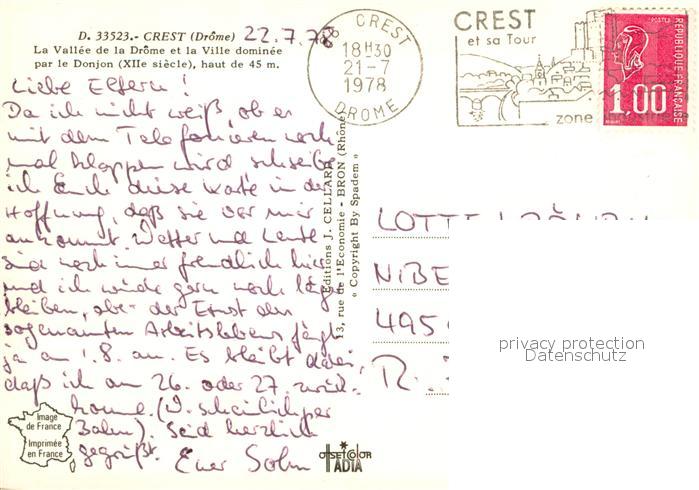 D. 33523.- CREST (Drôme) 22.7.78
La Vallée de la Drôme et la Ville dominée
par le Donjon (XIIe siècle), haut de 45 m.
Liebe Eltern!
Da ich nicht weiß, ob es
mit dem Telefonieren noch
mal klappen wird schreibe
ich Euch diese Karte in der
Hoffnung, daß sie vor mir
ankommt. Wetter und Leute
sind noch immer freundlich hier
und ich würde gern noch länger
bleiben, aber der Ernst des
sogenannten Arbeitslebens fängt
ja am 1.8. an. Es bleibt dabei,
daß ich am 26. oder 27. zurück-
komme. (W.scheinlich per
Bahn). Seid herzlich
gegrüßt. Euer Sohn
Image
de France
Imprimée
en France
OFFSETCOLOR
IADIA
Editions J. CELLARD
13, rue de l'Economie - BRON (Rhône)
« Copyright By Spadem »
26 CREST
18H30
21-7
1978
DROME
CREST
et sa Tour
zone
POSTES
REPUBLIQUE FRANÇAISE
1,00
LOTTE
NIBE
495
R.
privacy protection
Datenschutz